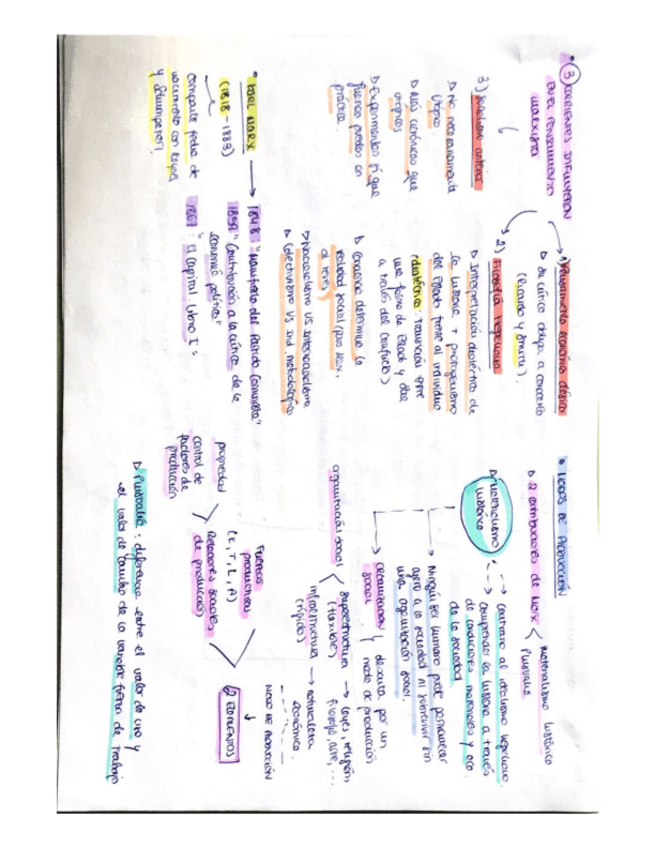 • ③ CORRIENTES INFLUYERON
EN EL PENSAMIENTO
MARXISTA
→ 1) Pensamiento económico clásico
▷ Su crítica obliga a conocerlo
(Ricardo y Smith).
→ 2) Filosofía Hegeliana
▷ Interpretación dialéctica de
la historia + protagonismo
del Estado frente al individuo
(dialéctica: transición entre
una forma de Estado y otra
a través del conflicto)
▷ Conciencia determina la
realidad social (para Marx,
al revés)
▷ Nacionalismo VS Internacionalismo
▷ Colectivismo VS Ind. metodológico
3) Socialismo anterior
▷ No necesariamente
utópico
▷ Más científicos que
utópicos
▷ Experimentos sí que
fueron puestos en
práctica.
• KARL MARX
(1818-1883)
comparte fecha de
nacimiento con Keynes
y Schumpeter.
→ 1848 "Manifiesto del Partido Comunista"
1859 "Contribución a la crítica de la
economía política"
1867: El Capital. Libro I:
• MODOS DE PRODUCCIÓN
▷ 2 contribuciones de Marx < Materialismo histórico
Plusvalía.
▷ Materialismo
histórico
--> Contrario al idealismo hegeliano.
--> Comprender la historia a través
de condiciones materiales y eco.
de la sociedad.
Ningún ser humano puede permanecer
ajeno a la sociedad ni sobrevivir sin
una organización social.
ORGANIZACIÓN
SOCIAL
y descrita por un
modo de producción
organización social <
superestructura
(flexible)
→ leyes, religión
filosofía, arte, ...
infraestructura
(rígida)
→ naturaleza
económica.
MODO DE PRODUCCIÓN
↓
2) ELEMENTOS
Fuerzas
productivas
(K, T, L, A)
Relaciones sociales
de producción
propiedad
control de
factores de
producción
▷ Plusvalía: diferencia entre el valor de uso y
el valor de cambio de la variable fuerza de trabajo